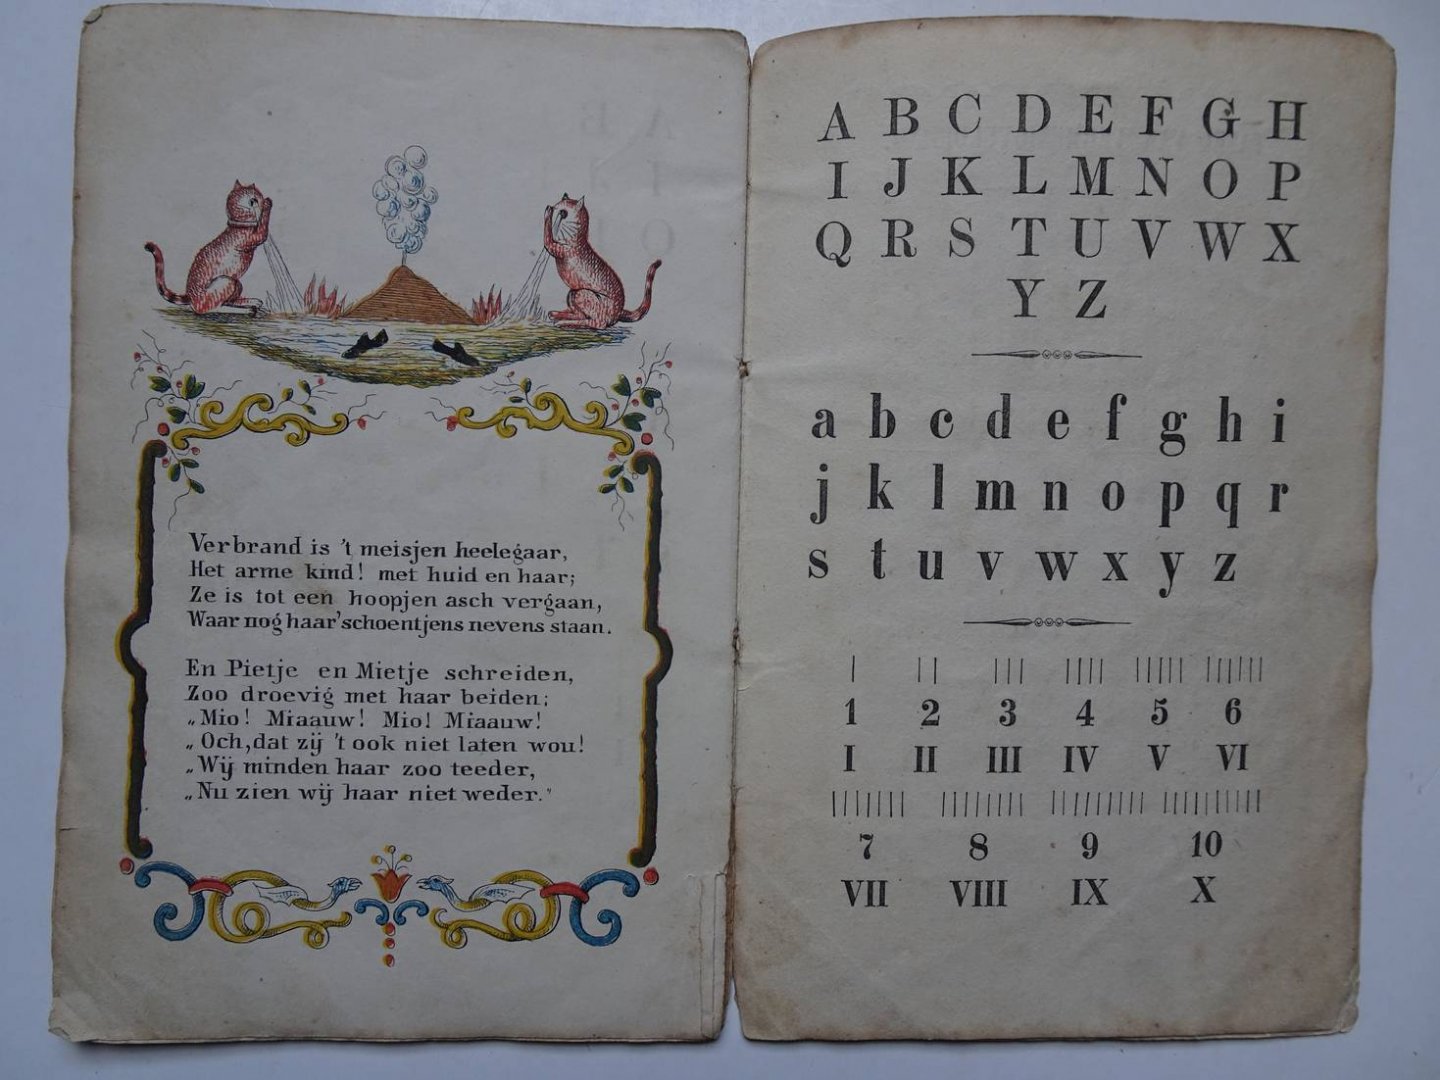 Verbrand is 't meisjen heelegaar,
Het arme kind! met huid en haar;
Ze is tot een hoopjen asch vergaan,
Waar nog haar' schoentjens nevens staan.
En Pietje en Mietje schreiden,
Zoo droevig met haar beiden;
„Mio! Miaauw! Mio! Miaauw!
„Och, dat zij 't ook niet laten wou!
„Wij minden haar zoo teeder,
„Nu zien wij haar niet weder.”
A B C D E F G H
I J K L M N O P
Q R S T U V W X
Y Z
a b c d e f g h i
j k l m n o p q r
s t u v w x y z
| || ||| |||| ||||| ||||||
1 2 3 4 5 6
I II III IV V VI
||||||| |||||||| ||||||||| ||||||||||
7 8 9 10
VII VIII IX X